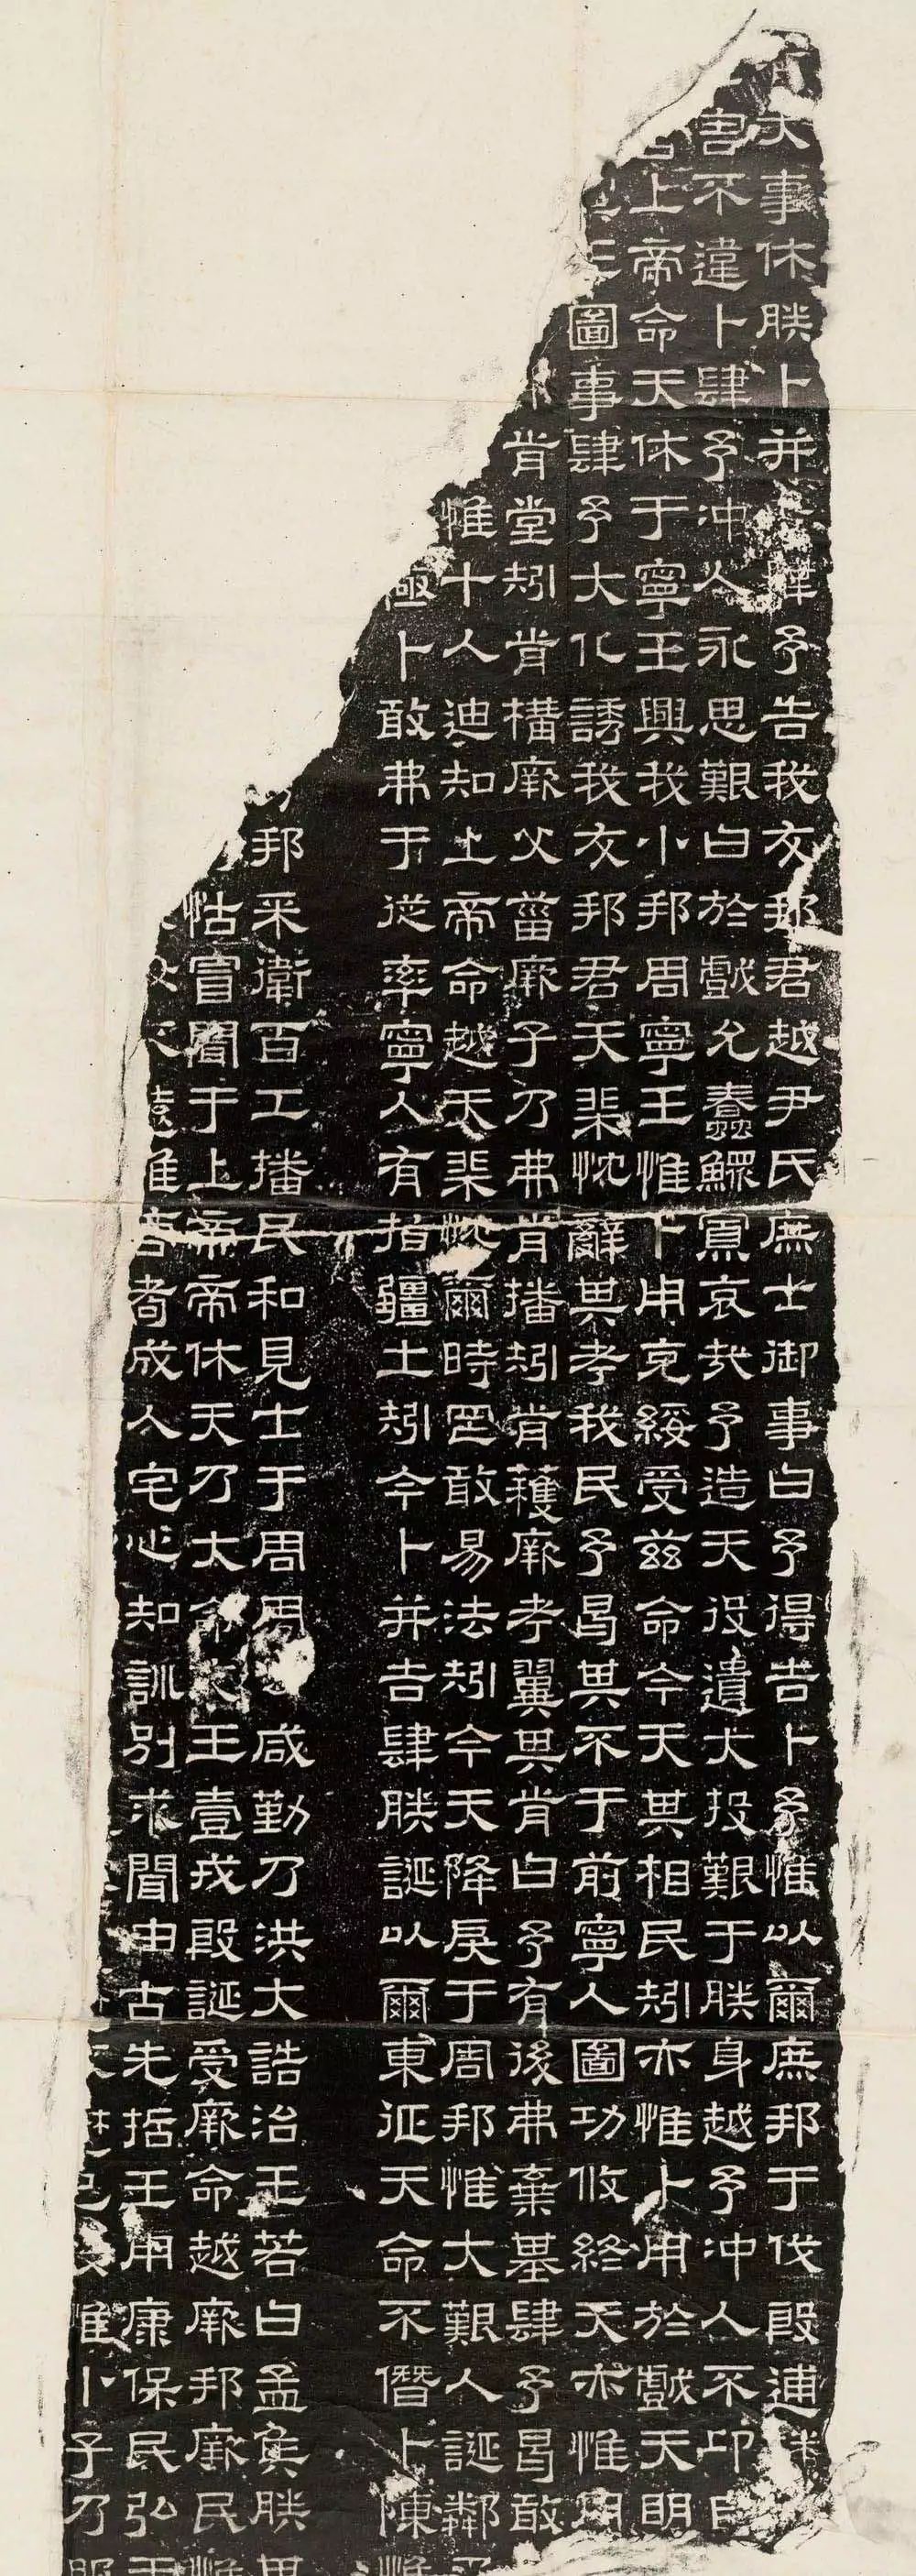 大事休朕卜并肆予告我友邦君越尹氏庶士御事曰予得吉卜予惟以爾庶邦于伐殷逋
害不違卜肆予沖人永思艱曰於戲允蠢鰥寡哀哉予造天役遺大投艱于朕身越予沖人不卬自
上帝命天休于寧王興我小邦周寧王惟卜用克綏受茲命今天其相民矧亦惟卜用於戲天明
圖事肆予大化誘我友邦君天棐忱辭其考我民予曷其不于前寧人圖功攸終天亦惟用
肯堂矧肯構厥父菑厥子乃弗肯播矧肯穫厥考翼其肯曰予有後弗棄基肆予曷敢
惟十人迪知上帝命越天棐忱爾時罔敢易法矧今天降戾于周邦惟大艱人誕鄰
極卜敢弗于從率寧人有指疆土矧今卜并吉肆朕誕以爾東征天命不僭卜陳惟
邦采衛百工播民和見士于周周咸勤乃洪大誥治王若曰孟侯朕其
怙冒聞于上帝帝休天乃大命文王壹戎殷誕受厥命越厥邦厥民惟
遠惟商耇成人宅心知訓別求聞由古先哲王用康保民弘于
惟小子乃服